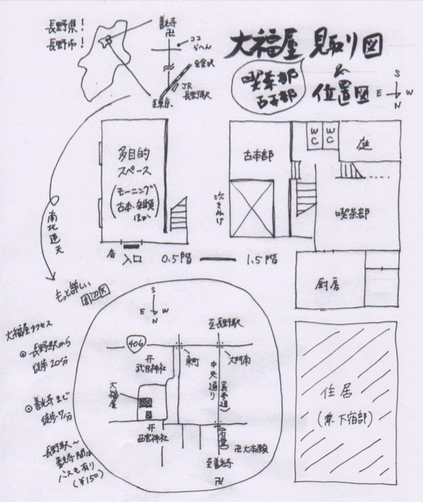 長野県!
長野市!
善光寺
卍
ココ
らへん
至金沢
至東京
JR
長野駅
大福屋 見取り図
&
位置図
喫茶部
古本部
S
E W
N
多目的
スペース
古本部
WC
WC
庭
吹きぬけ
喫茶部
厨房
入口
0.5階
1.5階
住居
(兼下宿部)
南北逆天
もっと詳しい
周辺図
S
E W
N
至長野駅
406
武井神社
東町
大門南
中央通り
大福屋
西宮神社
卍大本願
至善光寺
卍
大福屋アクセス
◎長野駅から
徒歩20分
◎善光寺まで
徒歩7分
長野駅〜
善光寺間は
バスも有り
(¥150)